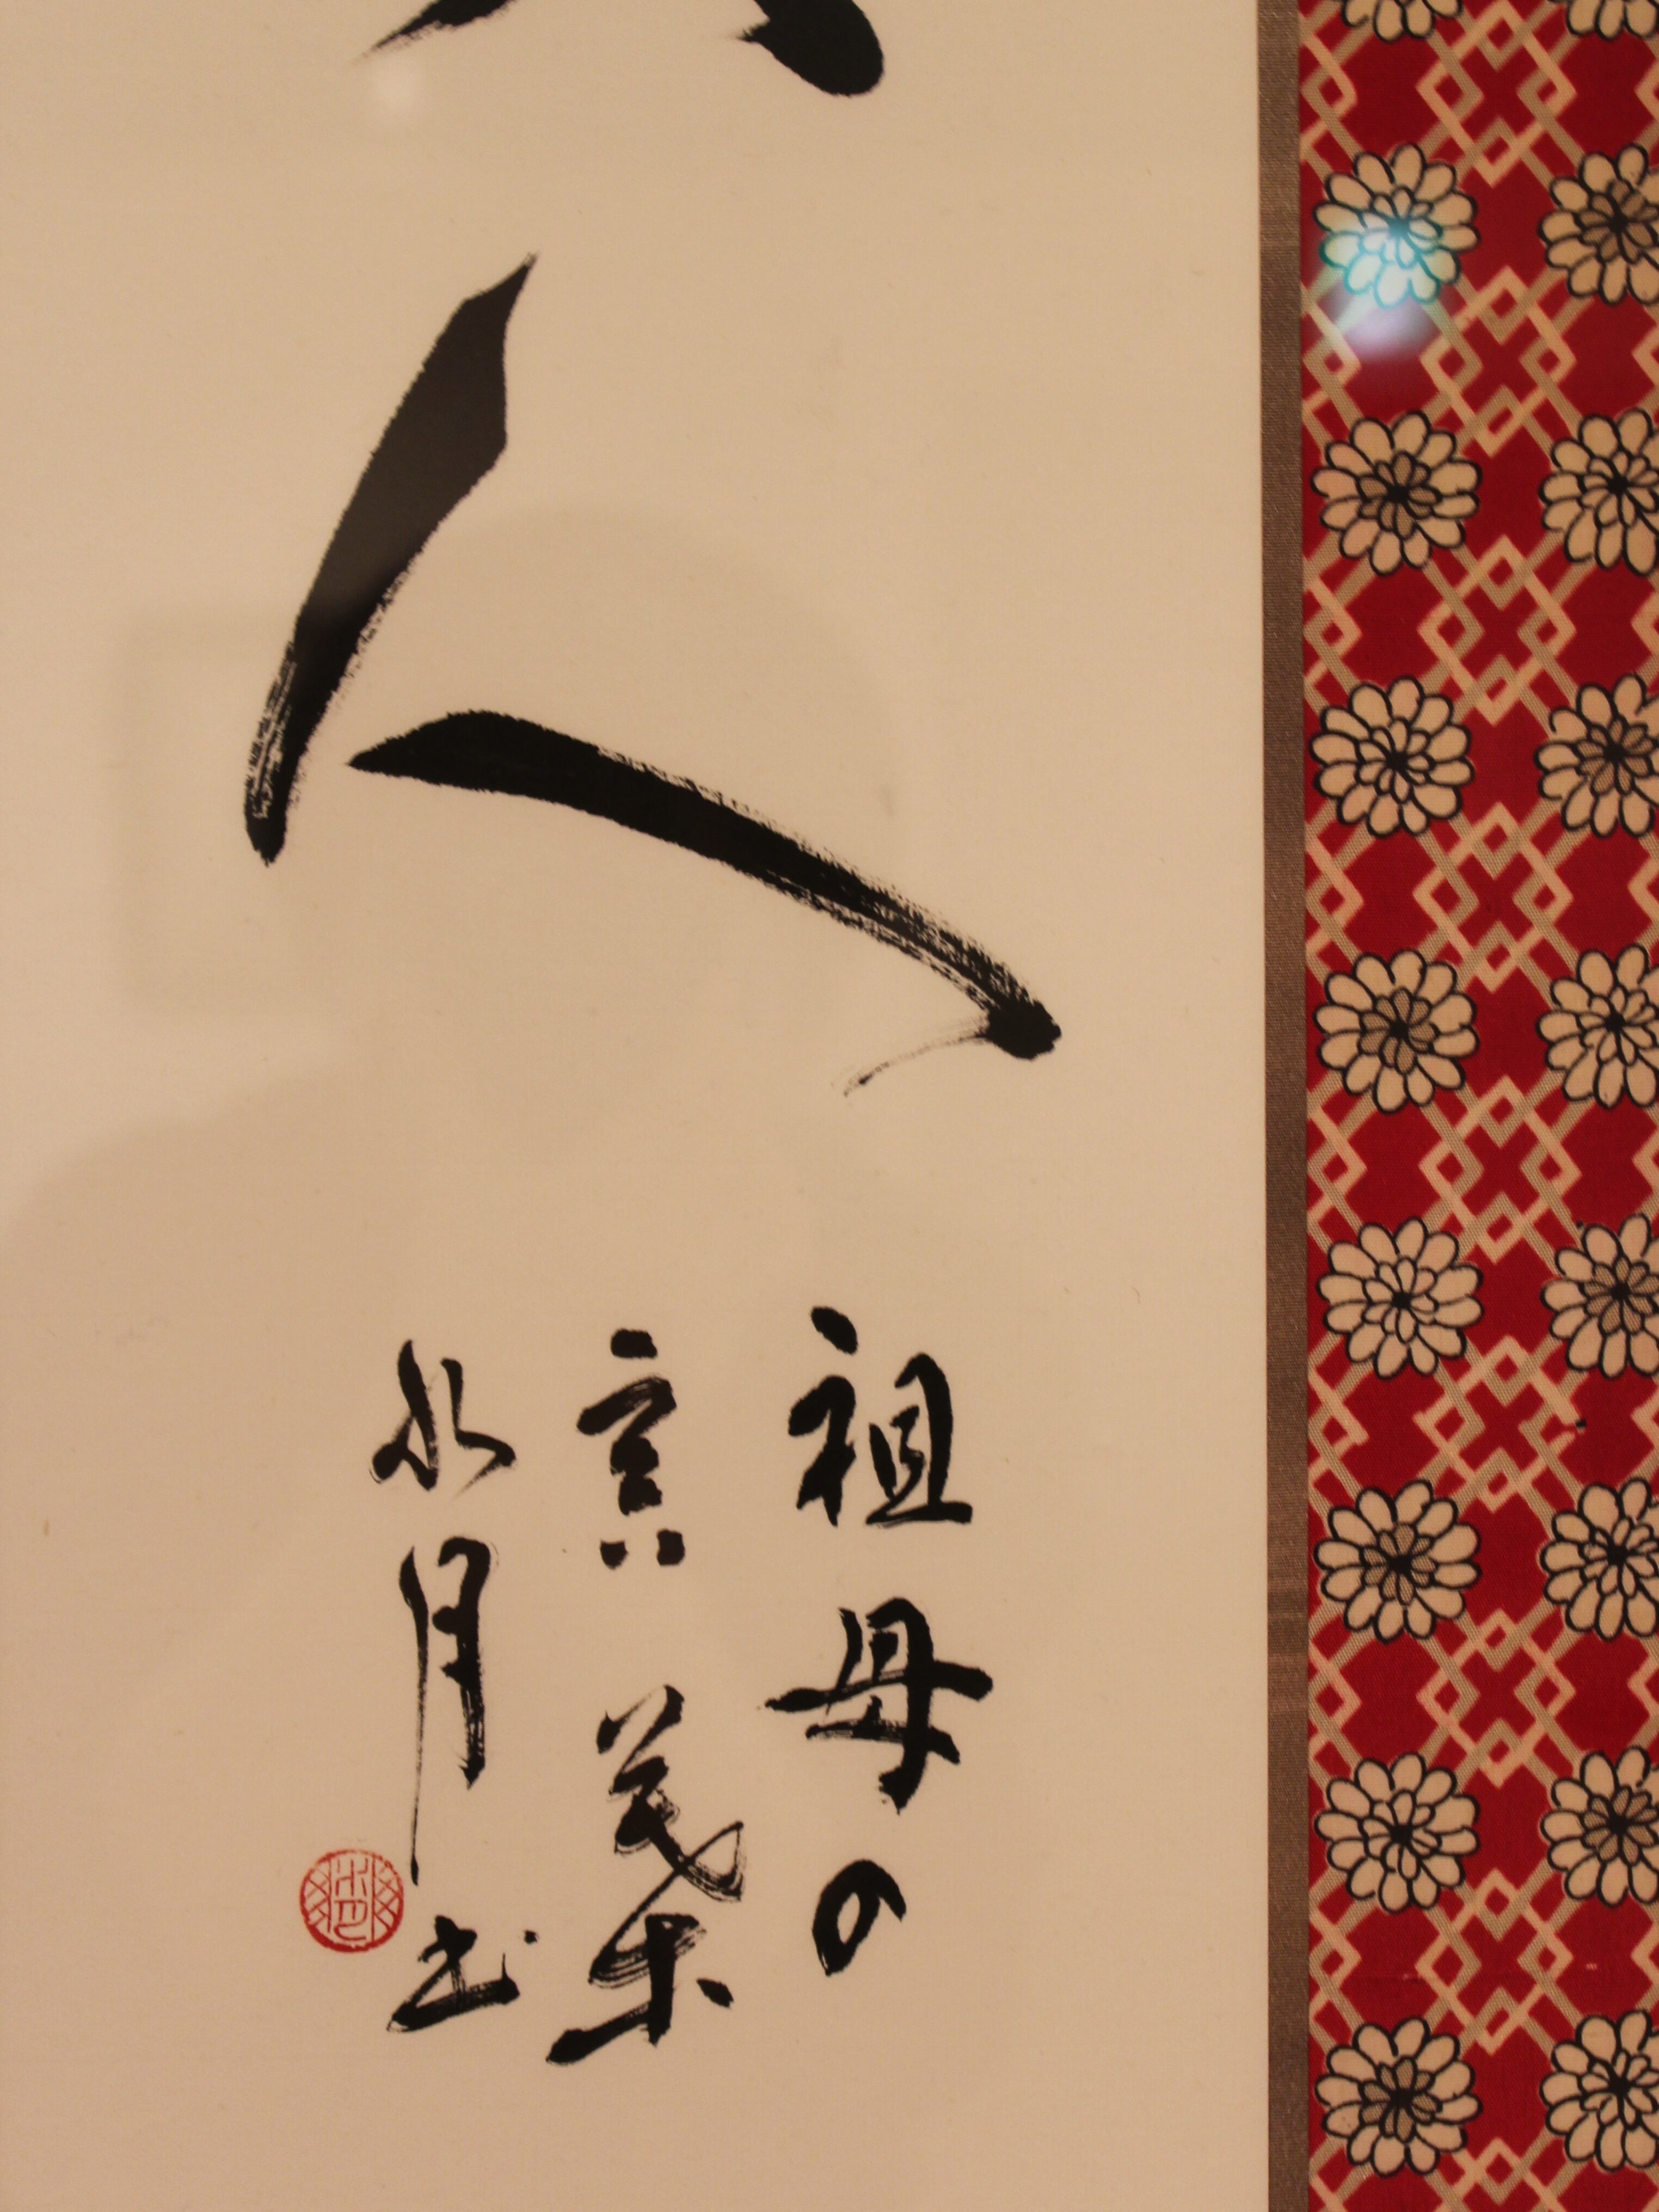 人
祖母の
言葉
水月書